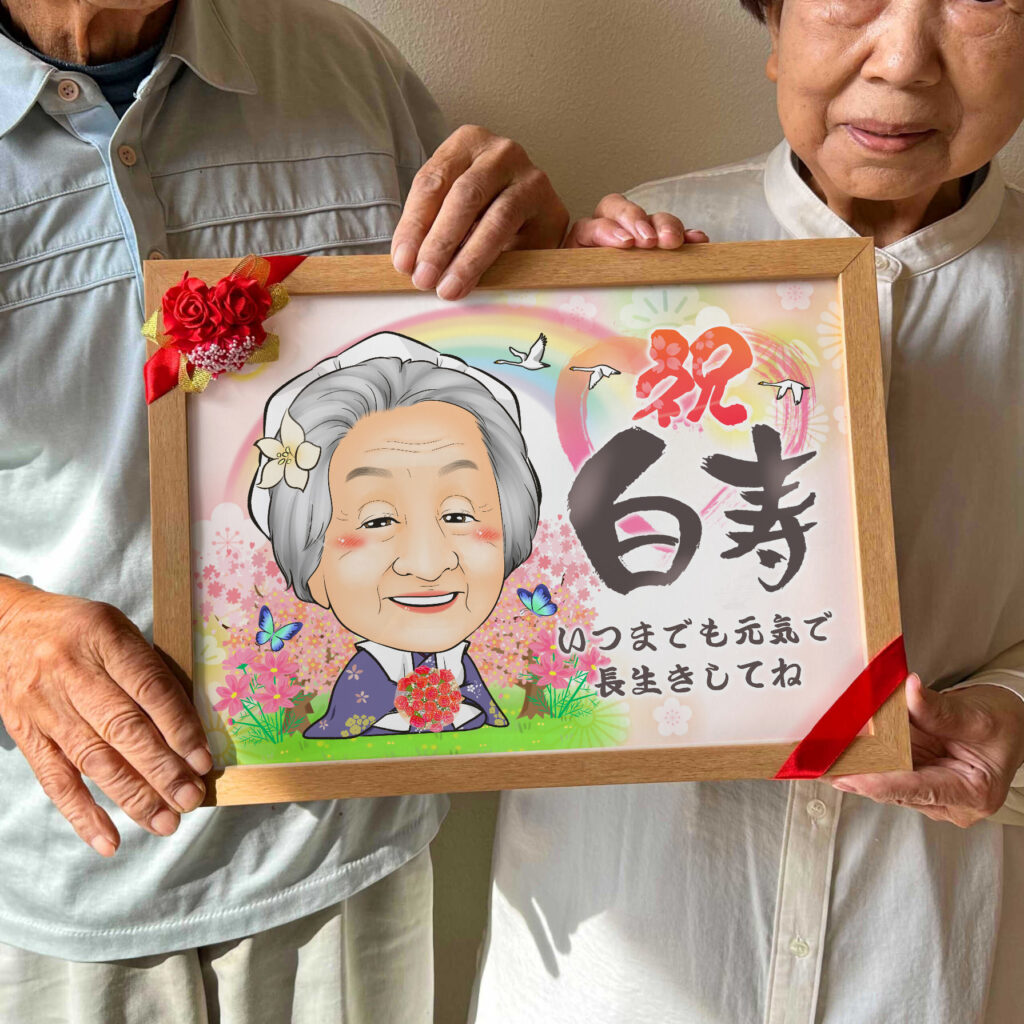 祝
白寿
いつまでも元気で
長生きしてね